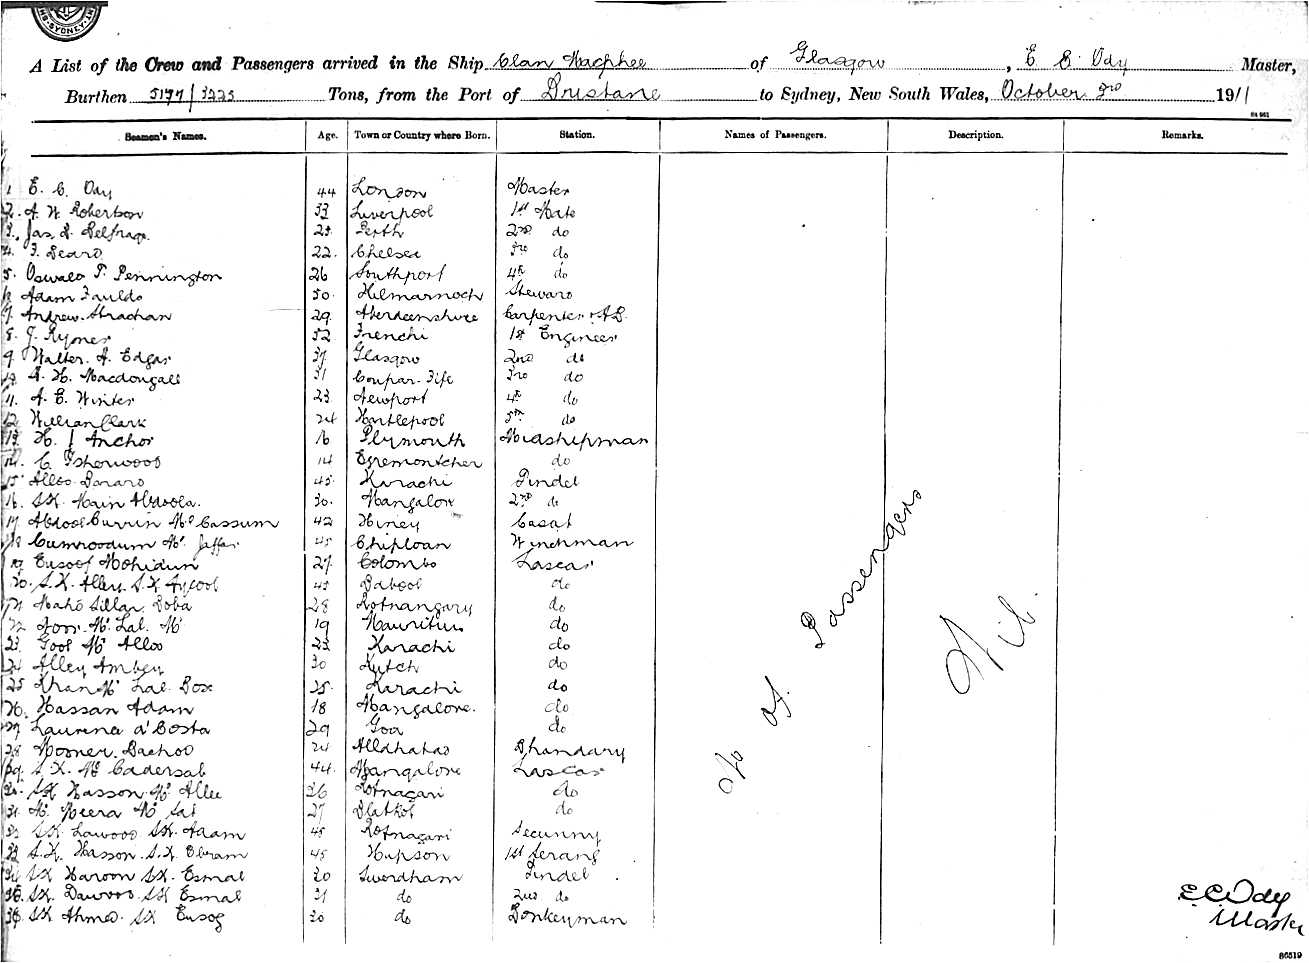 SYDNEY
A List of the Crew and Passengers arrived in the Ship Clan Macphee of Glasgow, E C Ody Master,
Burthen 5197/3225 Tons, from the Port of Brisbane to Sydney, New South Wales, October 3rd 1911
Seamen's Names. Age. Town or Country where Born. Station. Names of Passengers. Description. Remarks.
1 E. C. Ody 44 London Master
2. A. W. Robertson 33 Liverpool 1st Mate
3. Jas. R. Belfrage 25 Perth 2nd do
4. F. Beard 22. Chelsea 3rd do
5. Oswald P. Pennington 26 Southport 4th do
6 Adam Faulds 50. Kilmarnock Steward
7. Andrew Strachan 29 Aberdeenshire Carpenter & A.B.
8. J. Rymer 52 Frenchi 1st Engineer
9. Walter. A. Edgar 37 Glasgow 2nd do
10 A. H. Macdougall 31 Coupar. Fife 3rd do
11. A. E. Winter 23 Newport 4th do
12. William Clark 24 Hartlepool 5th do
13. H. J Anchor 16 Plymouth Midshipman
14. C. Isherwood 14 Egremontcher do
15 Alloo Danard 45. Karachi Tindel
16. SK. Main Abdoola. 30. Mangalore 2nd do
17 Abdool Currin Md Cassum 42 Hiney Casab
18 Cumroodum Md. Jaffar 45 Chiploan Winchman
19 Eusoof Mohidun 27 Colombo Lascar
20. S.K. Alley S.K Aycool 45 Dabool do
21 Mahd Sillar Boba 28 Rotnangary do
22 Md. Lal. Md 19 Mauritius do
23. Gool Md Alloo 23 Karachi do
24 Alley Ambey 30 Kutch do
25 Khan Md Lal Box 25. Karachi do
26. Hassan Adam 18 Mangalore. do
27 Laurina d'Costa 29 Goa do
28 Mooner. Bachoo 24 Alldhabad Bhandary
29. S. K. Md Cadersab 44. Mangalore Lascar
30. SK Hasson Md. Allee 36 Rotnagari do
31 M. Meera Md Sab 27 Blatkol do
32 SK. Dawood SK. Adam 45 Rotnagari Secunny
33 S.K. Hasson. S.K Ebram 45 Hupson 1st Serang
34 SK Haroon SK. Esmal 30 Swerdham Tindel.
35. SK. Dawood. SK Esmal 31 do 2nd do
36. SK Ahmed. SK Eusog 30 do Donkeyman
No of. Passengers
Nil.
E C Ody
Master
86519